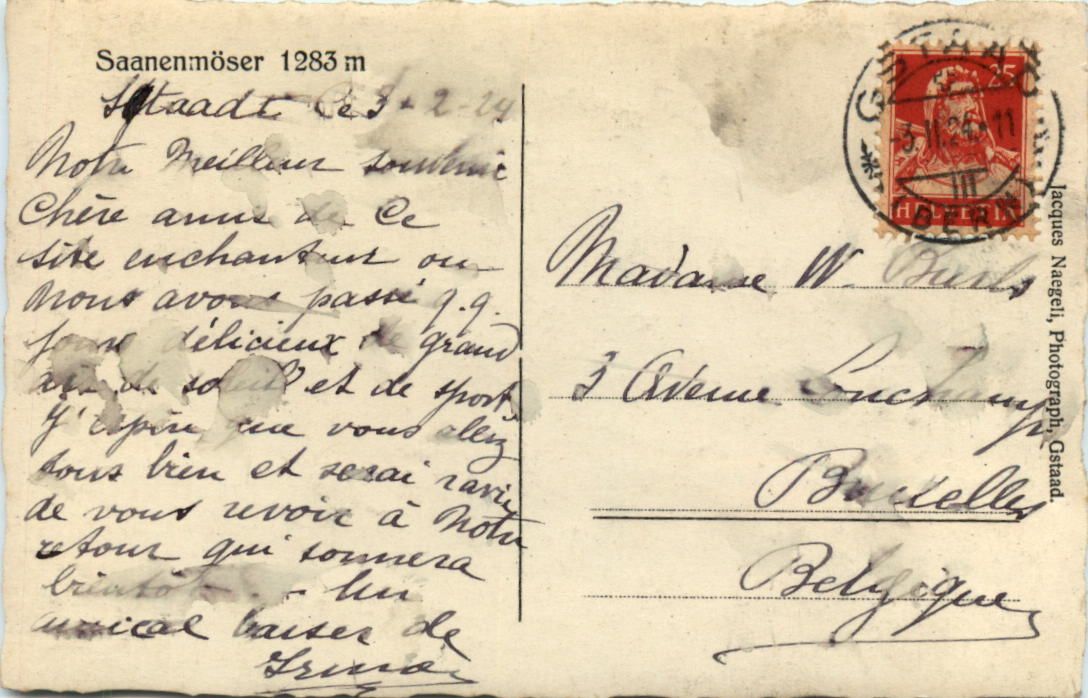 Saanenmöser 1283 m
Gstaadt Ce 3 - 2 - 24
Notre Meilleur souvenir
Chère amie de Ce
site enchanteur ou
nous avons passé q.q.
jours délicieux de grand
air de soleil et de sport.
J'espère que vous allez
tous bien et serai ravie
de vous revoir à Notre
retour qui sonnera
bientôt - Un
amical baiser de
GSTAAD
25
-3.II.24.-11
III
(BERN)
HELVETIA
Madame W.
3 Avenue Lonchamp
Bruxelles
Belgique
Jacques Naegeli, Photograph, Gstaad.